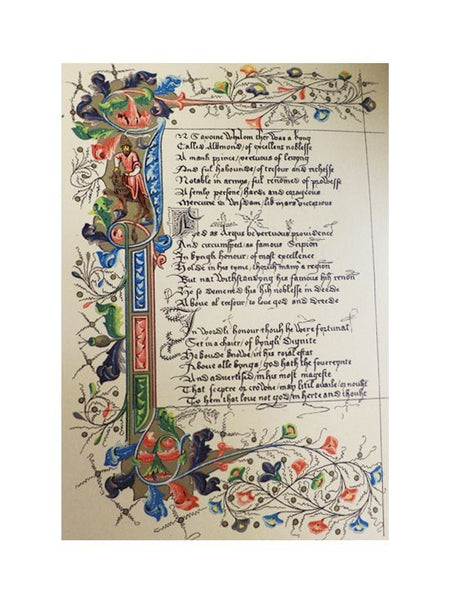 In Saxoine Whilom ther was a kyng
Callid Alkmond / of excellent noblesse
A manli prince / vertuous of levyng
And ful habounde / of tresour and richesse
Notable in armys / ful renomed of prowesse
A semly persone / hardi and corageous
Mercurie in Wisdam / lik mars victorious
Eyed as Argus be vertuous providence
And circumspect / as famous Scipion
In kyngli honour / of most excellence
Holde in his tyme / thoruh many a region
But nat withstandyng his famous hih renon
He so demened his hih noblesse in deede
Above al tresour / to love god and dreede
In Worldli honour thouh he were fortunat
Set in a chaier / of kyngli dignite
He koude knowe / in his roial estat
Above alle kynges / god hath the sovereynte
And advertised / in his most mageste
That sceptre or crowne / may litil availe / or nouht
To hem that love not god / in herte and thouht